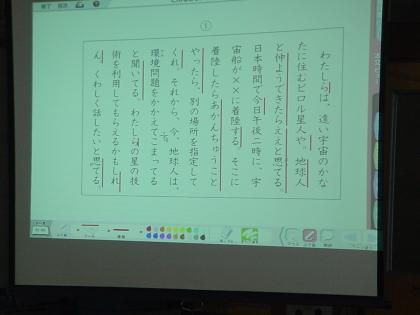 ①
わたしらは、遠い宇宙のかな
たに住むピロル星人や。地球人
と仲ようできたらええと思てる。
日本時間で今日午後二時に、宇
宙船が××に着陸する。そこに
着陸したらあかんちゅうこと
やったら、別の場所を指定して
くれ。それから、今、地球人は、
環境問題をかかえてこまってる
と聞いてる。わたしらの星の技
術を利用してもらえるかもしれ
ん。くわしく話したいと思てる。